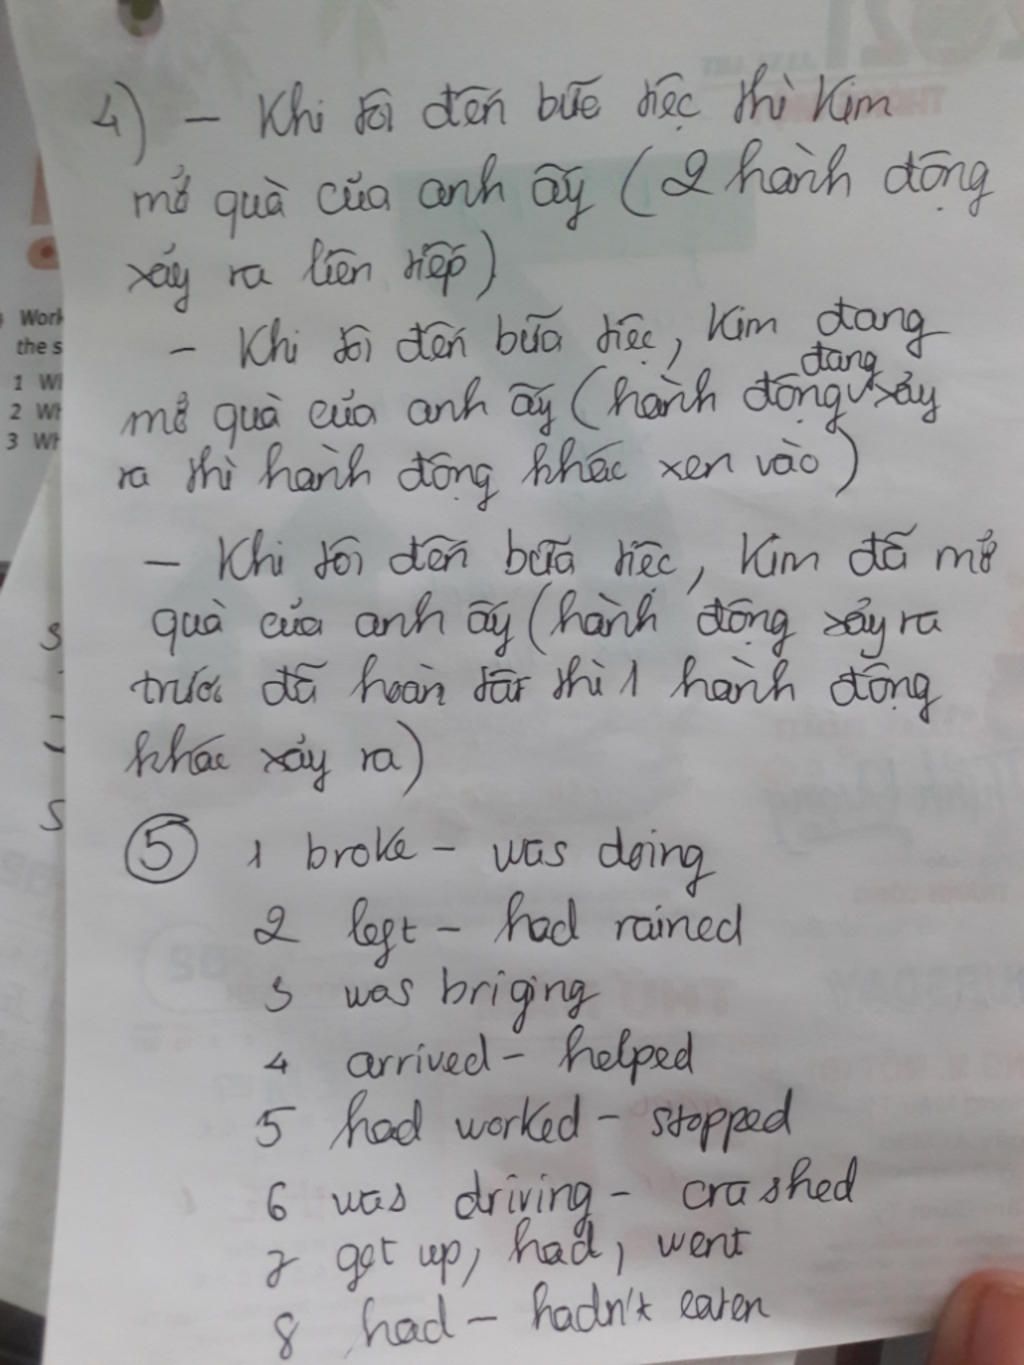 4) - Khi tôi đến bữa tiệc thì Kim
mở quà của anh ấy (2 hành động
xảy ra liên tiếp)
- Khi tôi đến bữa tiệc, Kim đang
đang
mở quà của anh ấy (hành động xảy
ra thì hành động khác xen vào)
- Khi tôi đến bữa tiệc, Kim đã mở
quà của anh ấy (hành động xảy ra
trước đã hoàn tất thì 1 hành động
khác xảy ra)
5 1 broke - was doing
2 left - had rained
3 was briging
4 arrived - helped
5 had worked - stopped
6 was driving - crashed
7 get up, had, went
8 had - hadn't eaten
Work
the s
1 Wh
2 Wh
3 Wh